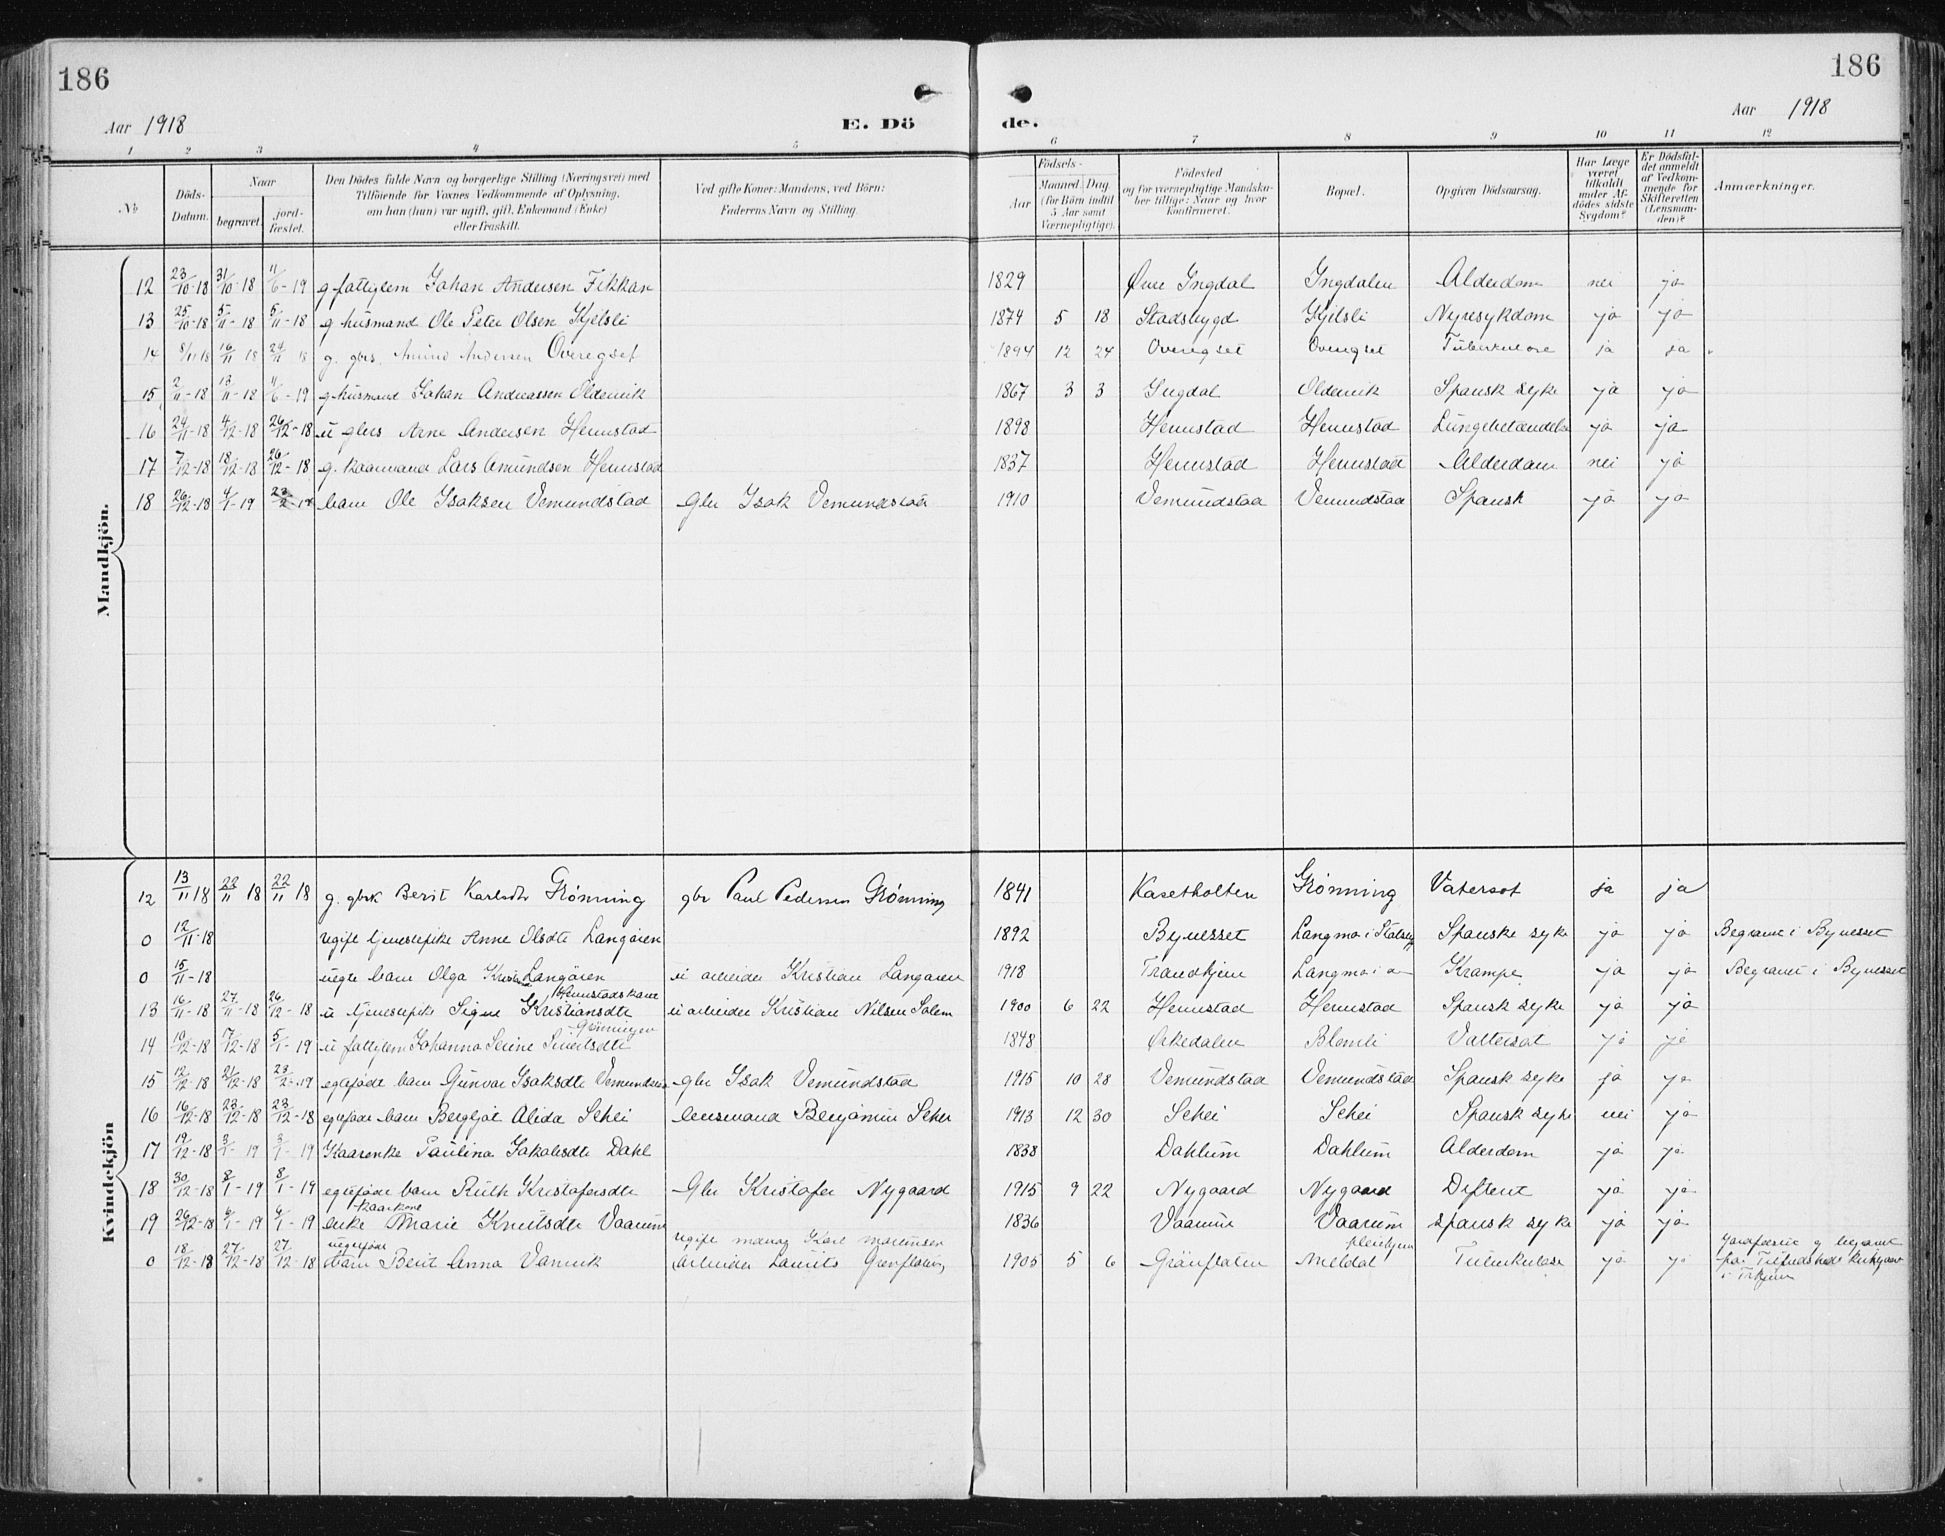 186
186
Aar 1918
E. Dö
de.
Aar 1918
1 2 3 4 5 6 7 8 9 10 11 12
No
Döds-
Datum.
Naar
begravet.
jord-
fæstet.
Den Dödes fulde Navn og borgerlige Stilling (Næringsvei) med
Tilföiende for Voxnes Vedkommende af Oplysning,
om han (hun) var ugift, gift, Enkemand (Enke)
eller fraskilt.
Ved gifte Koner: Mandens, ved Börn:
Faderens Navn og Stilling.
Födsels-
Aar
Maaned.
Dag.
(for Börn indtil
5 Aar samt
Værnepligtige).
Födested
og for værnepligtige Mandska-
ber tillige: Naar og hvor
konfirmeret.
Bopæl.
Opgiven Dödsaarsag.
Har Læge
været
tilkaldt
under Af-
dödes sidste
Sygdom?
Er Dödsfal-
det anmeldt
af Vedkom-
mende for
Skifteretten
(Lensman-
den)?
Anmærkninger.
Mandkjön.
12 23/10-18 31/10-18 11/6-19 g fattiglem Johan Andersen Fikkan 1829 Övre Ingdal Ingdalen Alderdom nei ja
13 25/10-18 5/11-18 5/11-18 g husmand Ole Peter Olsen Kjelsli 1874 5 18 Stadsbygd Kjelsli Nyresykdom ja ja
14 8/11 18 16/11 18 24/11 18 g. gbrs. Amund Andersen Overegset 1894 12 24 Overegset Overegset Tuberkulose ja ja
15 2/11-18 13/11-18 11/6-19 g husmand Johan Andreassen Oldervik 1867 3 3 Ingdal Oldervik Spansk syke ja ja
16 24/11-18 4/12-18 26/12-18 u gbrs Arne Andersen Hennstad 1898 Hennstad Hennstad Lungebetændelse ja ja
17 7/12-18 18/12-18 26/12-18 g. kaarmand Lars Amundsen Hennstad 1837 Hennstad Hennstad Alderdom nei ja
18 26/12-18 4/1-19 23/2-19 barn Ole Isaksen Vemundstad Gbr Isak Vemundstad 1910 Vemundstad Vemundstad Spansk ja ja
Kvindekjön
12 13/11 18 22/11 18 22/11 18 g. gbrk Berit Karlsdtr Grönning gbr Paul Pedersen Grönning 1841 Kasetholten Grönning Vatersot ja ja
0 12/11-18 ugift tjenestepike Anne Olsdtr Langören 1892 Bynesset Langmo i Spanske syke ja ja Begravet i Bynesset
0 15/11-18 uegte barn Olga Langören u arbeider Kristian Langören 1918 Trondhjem Langmo i Krampe ja ja Begravet i Bynesset
Hennstadskaret
13 16/11-18 27/11-18 26/12-18 u tjenestepike Signe Kristiansdtr u arbeider Kristian Nilsen Solem 1900 6 22 Hennstad Hennstad Spansk syke ja ja
Grönningen
14 10/12-18 17/12-18 5/1-19 u fattiglem Johanna Serine Sivertsdtr 1848 Örkedalen Blomli Vattersot ja ja
15 12/12-18 21/12-18 23/2-19 egtefödt barn Gunvor Isaksdtr Vemundstad Gbr Isak Vemundstad 1915 10 28 Vemundstad Vemundstad Spansk syke ja ja
16 16/12-18 23/12-18 23/12-18 egtefödt barn Bergljot Alida Schei lensmand Benjamin Schei 1913 12 30 Schei Schei Spansk syke nei ja
17 19/12-18 3/1-19 3/1-19 Kaarenke Paulina Jakobsdtr Dahl 1838 Dahlum Dahlum Alderdom ja ja
18 30/12-18 8/1-19 8/1-19 egtefödt barn Ruth Kristofersdtr Gbr Kristofer Nygaard 1915 9 22 Nygaard Nygaard Difteri ja ja
kaarkone
19 26/12-18 4/1-19 4/1-19 enke Marie Knutsdtr Vaarum 1836 Vaarum Vaarum spansk syke ja ja
uegtefödt ugift Karl Martinsen pleiehjem Jordfæstet og begravet
0 18/12-18 27/12-18 27/12-18 barn Berit Anna Vanvik arbeider Laurits 1905 5 6 Grönfloten Meldal Tuberkulose ja ja paa Tilfredshets kirkgaar
i Trhjem